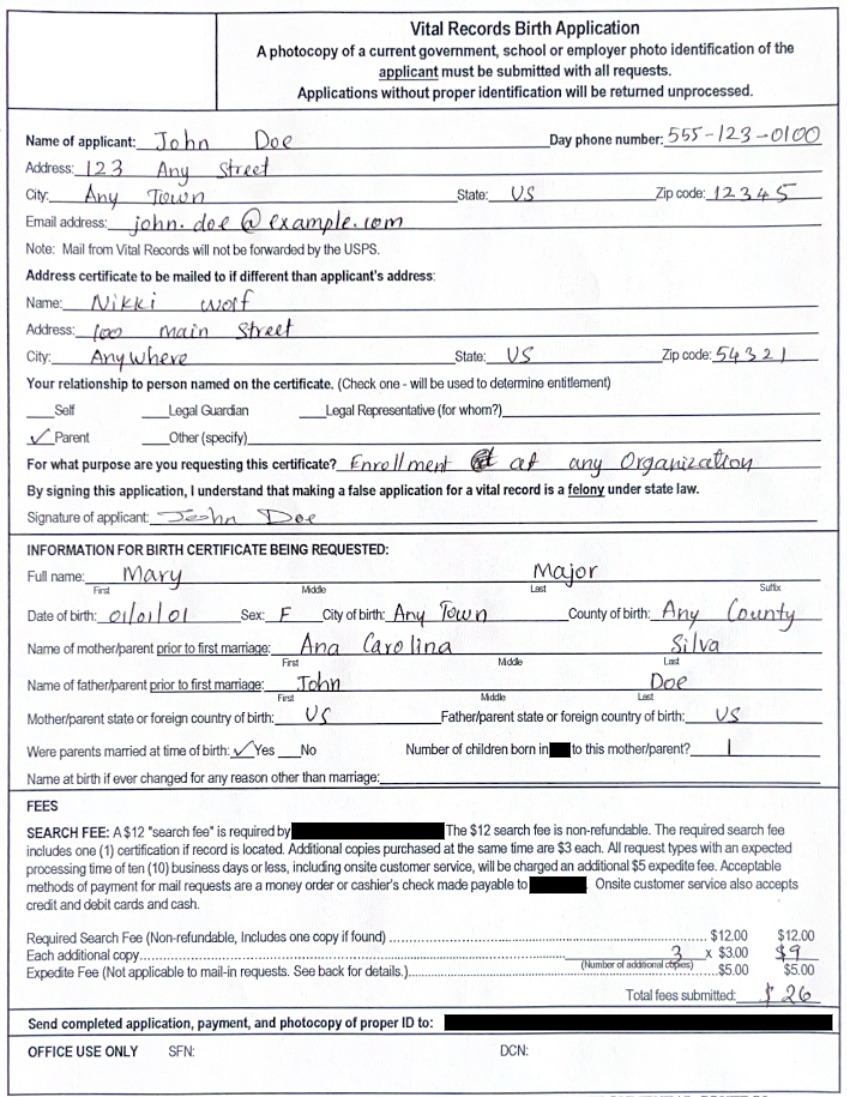 Vital Records Birth Application
A photocopy of a current government, school or employer photo identification of the
applicant must be submitted with all requests.
Applications without proper identification will be returned unprocessed.
Name of applicant: John Doe Day phone number: 555-123-0100
Address: 123 Any Street
City: Any Town State: US Zip code: 12345
Email address: john.doe@example.com
Note: Mail from Vital Records will not be forwarded by the USPS.
Address certificate to be mailed to if different than applicant's address:
Name: Nikki Wolf
Address: 100 main Street
City: Anywhere State: US Zip code: 54321
Your relationship to person named on the certificate. (Check one - will be used to determine entitlement)
Self Legal Guardian Legal Representative (for whom?)
✓ Parent Other (specify)
For what purpose are you requesting this certificate? Enrollment at any Organization
By signing this application, I understand that making a false application for a vital record is a felony under state law.
Signature of applicant: John Doe
INFORMATION FOR BIRTH CERTIFICATE BEING REQUESTED:
Full name: Mary Major
First Middle Last Suffix
Date of birth: 01/01/01 Sex: F City of birth: Any Town County of birth: Any County
Name of mother/parent prior to first marriage: Ana Carolina Silva
First Middle Last
Name of father/parent prior to first marriage: John Doe
First Middle Last
Mother/parent state or foreign country of birth: US Father/parent state or foreign country of birth: US
Were parents married at time of birth: ✓ Yes No Number of children born in to this mother/parent? 1
Name at birth if ever changed for any reason other than marriage:
FEES
SEARCH FEE: A $12 "search fee" is required by The $12 search fee is non-refundable. The required search fee
includes one (1) certification if record is located. Additional copies purchased at the same time are $3 each. All request types with an expected
processing time of ten (10) business days or less, including onsite customer service, will be charged an additional $5 expedite fee. Acceptable
methods of payment for mail requests are a money order or cashier's check made payable to . Onsite customer service also accepts
credit and debit cards and cash.
Required Search Fee (Non-refundable, Includes one copy if found) $12.00 $12.00
Each additional copy 3 x $3.00 $9
(Number of additional copies)
Expedite Fee (Not applicable to mail-in requests. See back for details.) $5.00 $5.00
Total fees submitted: $26
Send completed application, payment, and photocopy of proper ID to:
OFFICE USE ONLY SFN: DCN: